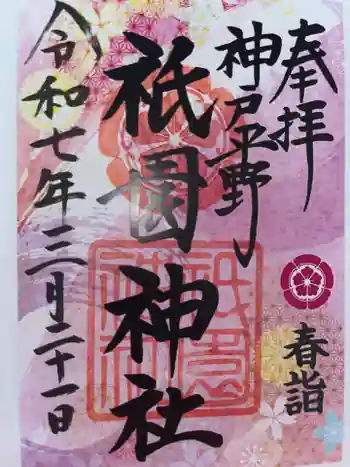 奉拝
春詣
神戸平野
祇園神社
祇園
神社
令和七年三月二十一日